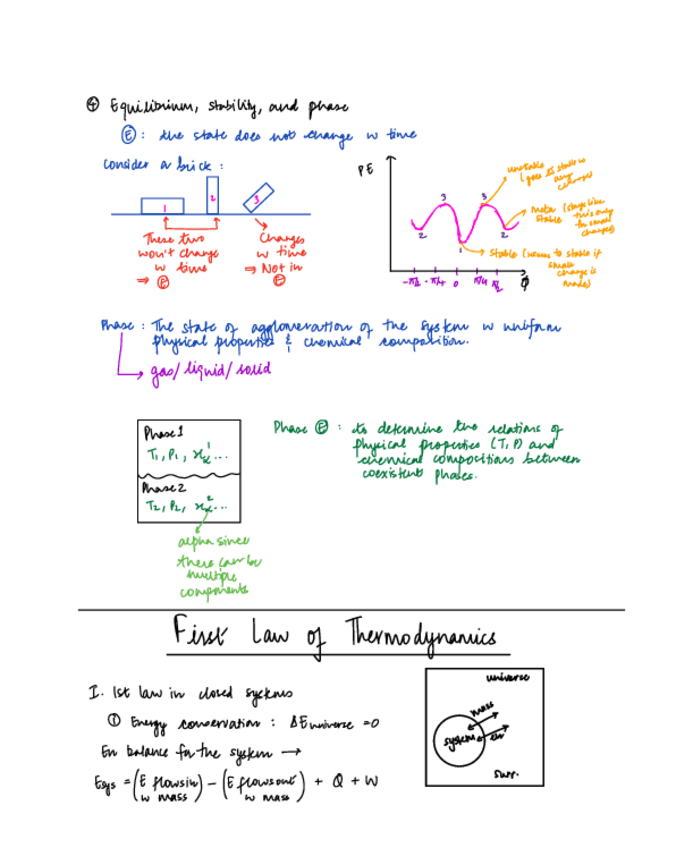 ④ Equilibrium, stability, and phase
Ⓔ : the state does not change w time
Consider a brick :
1
2
3
These two
won't change
w time
⇒ Ⓔ
Changes
w time
⇒ Not in
Ⓔ
PE
unstable
(goes to stable w
any
change)
3
3
meta
stable
(stays like
this only
for small
changes)
2
2
1
stable (returns to stable if
small
change is
made)
-π/2 -π/4 0 π/4 π/2
Φ
Phase : The state of agglomeration of the system w uniform
physical properties & chemical composition.
gas/liquid/solid
Phase 1
T₁, P₁, x¹α ...
Phase 2
T₂, P₂, x²α ...
alpha since
there can be
multiple
components
Phase Ⓔ : to determine two relations of
physical properties (T, P) and
chemical compositions between
coexistent phases.
First Law of Thermodynamics
I. 1st law in closed systems
① Energy conservation : ΔE universe = 0
En balance for the system →
Esys = (E flows in w mass) - (E flows out w mass) + Q + W
universe
mass
system
en
surr.